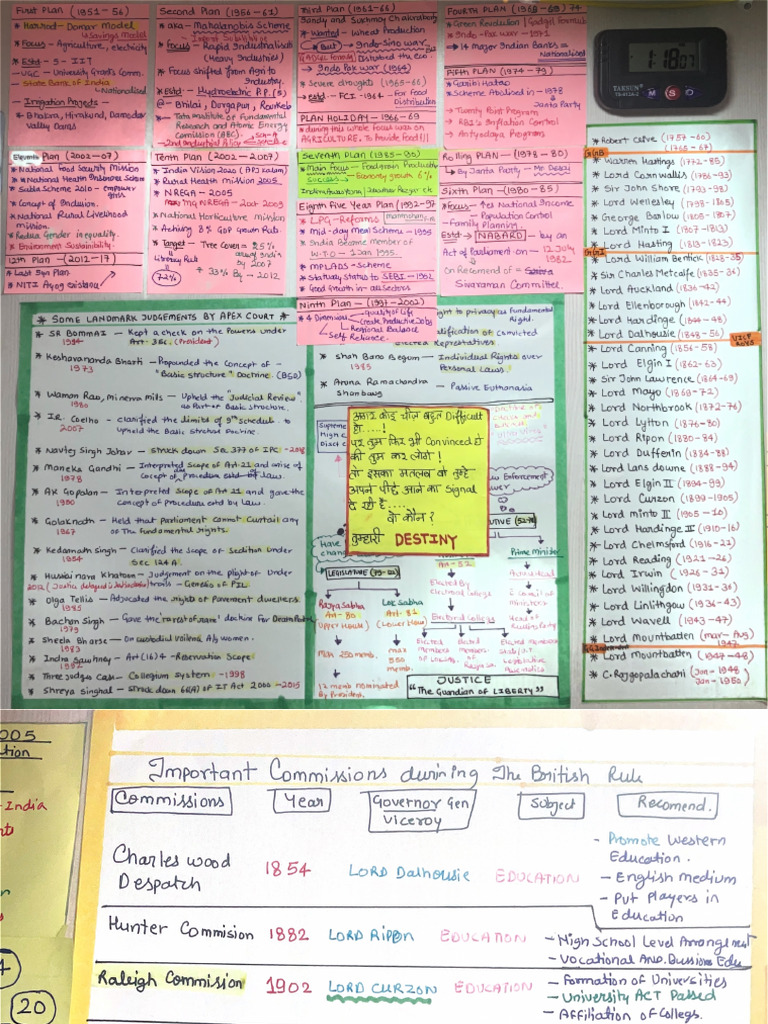 First Plan (1951-56)
* Harrod-Domar Model
↳ Savings Model
* Focus - Agriculture, electricity
* Estd - 5 - IIT
- UGC - University Grants Comm.
- State Bank of India
↳ Nationalised
* Irrigation Projects -
* Bhakra, Hirakund, Damodar
Valley Dams
Second Plan (1956-61)
* aka - Mahalanobis Scheme
* Focus - Rapid Industrialisatn
(Heavy Industries)
* Focus Shifted from Agri to
Industry.
* Estd - Hydroelectric P.P. (5)
@ - Bhilai, Durgapur, Rourkela
- Tata Institute of Fundamental
Research and Atomic Energy
Comission (BBC).
- 2nd Industrial Policy
Third Plan (1961-66)
Sandy and Sukhmoy Chakraborty
* Wanted - Wheat Production
But → Indo-Sino war
Disturbed the Eco.
→ Indo Pak war (1966)
* Severe droughts (1965-66)
* Estd - FCI - 1964 - For Food
Distribution
PLAN HOLIDAY - 1966-69
* during this whole focus was on
AGRICULTURE, To Provide food!!!
FOURTH PLAN (1969-69) 74)
* Green Revolution | Gadgil formula
* Indo-Pak war - 1971
* 14 major Indian Banks -
Nationalised
FIFTH PLAN (1974-79)
* Garibi Hatao
* Scheme Abolised in - 1978
↳ Janta Party
- Twenty Point Program
- RBI's Inflation Control
- Antyodaya Program
1:18 07
TAKSUN
M S
Eleventh Plan (2002-07)
* National Food Security Mission
* National Health Insurance Scheme
* Sabla Scheme 2010 - empower
girls
* Concept of Inclusion.
* National Rural Livelihood
mission.
* Reduce Gender inequality.
* Environment Sustainability.
12th Plan (2012-17)
* Last Five Plan
* NITI Ayog existance
Tenth Plan (2002-2007)
* India Vision 2020 (APJ Kalam)
* Rural Health mission 2005
* NREGA - 2005
MNREGA - 2 Oct 2009
* National Horticulture mission
* Achieving 8% GDP growth Rate.
* Target - Tree Cover = 25%
by 2007
* 33% By - 2012
Literacy Rate
↓
72%
Seventh Plan (1985-90)
* Main Focus - Foodgrain Productn
SUCCESS - Economy growth 6%
Eighth Five Year Plan (1992-97)
* LPG - Reforms → manmohan S.
* Mid-day meal Scheme - 1995
* India Become member of
W.T.O - 1 Jan 1995.
* MPLADS - Scheme
* Statuaty Status to SEBI - 1992
* Good Growth in all Sectors
Ninth Plan - (1997-2002)
* 4 Dimensions → Quality of Life
↳ Create Productive Jobs
↳ Regional Balance
↳ Self Reliance.
Rolling PLAN - (1978-80)
* By Janta Party - Mr Desai
Sixth Plan - (1980-85)
* Focus - ↑es National Income
- Population Control
- Family Planning.
* Estd → NABARD - by an
Act of Parliament on - 12 July
1982
* On Recomend of -
Sivaraman Committee.
* SOME LANDMARK JUDGEMENTS BY APEX COURT *
* SR BOMMAI - Kept a check on the Powers under
1994 Art - 356. (President)
* Keshavananda Bharti - Propounded the Concept of -
1973 "Basic Structure" Doctrine. (BSD)
* Waman Rao, minerva mills - Upheld the "Judicial Review"
1980 as Part of Basic Structure.
* I.R. Coelho - clarified the limits of 9th Schedule to
2007 Upheld the Basic Structure Doctrine.
* Navtej Singh Johar - Struck down Sec 377 of IPC - 2018
* Maneka Gandhi - Interpreted Scope of Art 21 and arise of
1978 Concept of Procedure estd by Law.
* AK Gopalan - Interpreted Scope of Art 21 and gave the
1950 Concept of Procedure estd by Law.
* Golaknath - Held that parliament cannot Curtail any
1967 Of The Fundamental rights.
* Kedarnath Singh - Clarified the Scope of Sedition Under
1954 SEC 124 A.
* Hussainara Khatoon - Judgement on the plight of Under
trails - Genesis of PIL
* Olga Tellis - Advocated the rights of Pavement dwellers.
1985
* Bachan Singh - Gave the 'rarest of rare' doctrine For Death Penalty
1979
* Sheela Bharse - On custodial voilence A/g Women.
- 1983
* Indra Sawhney - Art (16) 4 - Reservation Scope
1992
* Three Judges Case - Collegium System - 1998
* Shreya Singhal - Struck down 66(A) of IT Act 2000 - 2015
ght to privacy as Fundamental
Right.
alification of Convicted
ected Repretatives
* Shah Bano Begum - Individual Rights over
1985 Personal Laws.
* Aruna Ramachandra
Shanbaug - Passive Euthanasia
Supreme
High C
Distt C
अगर कोई चीज़ बहुत Difficult
हो....!
पर तुम फिर भी Convinced हो
की तुम कर लोगे!
तो इसका मतलब वो तुम्हे
अपने पीछे आने का Signal
दे रही है....
वो कौन?
तुम्हारी DESTINY
aw Enforcement
wer
Have
chang
LEGISLATIVE (79-122)
Rajya Sabha
Art - 80
(Upper House)
↓
Max 250 memb.
↓
12 memb nominated
By President.
Lok Sabha
Art - 81
(Lower House)
↓
max
550
memb.
Art - 52
Elected By
electoral College
Electoral College
Elected
members
Elected
members
UTIVE (52-78)
Prime minister
Council of
ministers
Head of
JUSTICE
"The Guardian of LIBERTY"
* Robert Clive (1757-60)
(1765-67)
G.G.O.B
* Warren Hastings (1772-85)
* Lord Cornwallis (1786-93)
* Sir John Shore (1793-98)
* Lord Wellesley (1798-1805)
* George Barlow (1805-1807)
* Lord Minto I (1807-1813)
* Lord Hasting (1813-1823)
G.G.O.I
* Lord William Bentick (1828-35)
* Sir Charles Metcalfe (1835-36)
* Lord Auckland (1836-42)
* Lord Ellenborough (1842-44)
* Lord Hardinge (1844-48)
* Lord Dalhousie (1848-56)
VICEROYS
* Lord Canning (1856-58)
* Lord Elgin I (1862-63)
* Sir John Lawrence (1864-69)
* Lord Mayo (1869-72)
* Lord Northbrook (1872-76)
* Lord Lytton (1876-80)
* Lord Ripon (1880-84)
* Lord Dufferin (1884-88)
* Lord Lans downe (1888-94)
* Lord Elgin II (1894-99)
* Lord Curzon (1899-1905)
* Lord minto II (1905-10)
* Lord Hardinge II (1910-16)
* Lord Chelmsford (1916-21)
* Lord Reading (1921-26)
* Lord Irwin (1926-31)
* Lord Willingdon (1931-36)
* Lord Linlithgow (1936-43)
* Lord Wavell (1943-47)
* Lord Mountbatten (mar-Aug)
1947
* Lord Mountbatten (1947-48)
* C. Rajgopalachari (Jun-1948
Jan-1950)
005
tion
- India
4
20
Important Commissions durining The British Rule
Commissions Year Governor Gen Viceroy Subject Recomend.
Charles wood Despatch 1854 LORD Dalhousie EDUCATION
- Promote Western
Education.
- English medium
- Put Players in
Education
Hunter Commision 1882 LORD Rippon EDUCATION
- High School Level Arrangement
- Vocational And Bussions Edu
Raleigh Commission 1902 LORD CURZON EDUCATION
- Formation of Universities
- University ACT Passed
- Affiliation of Colleges.